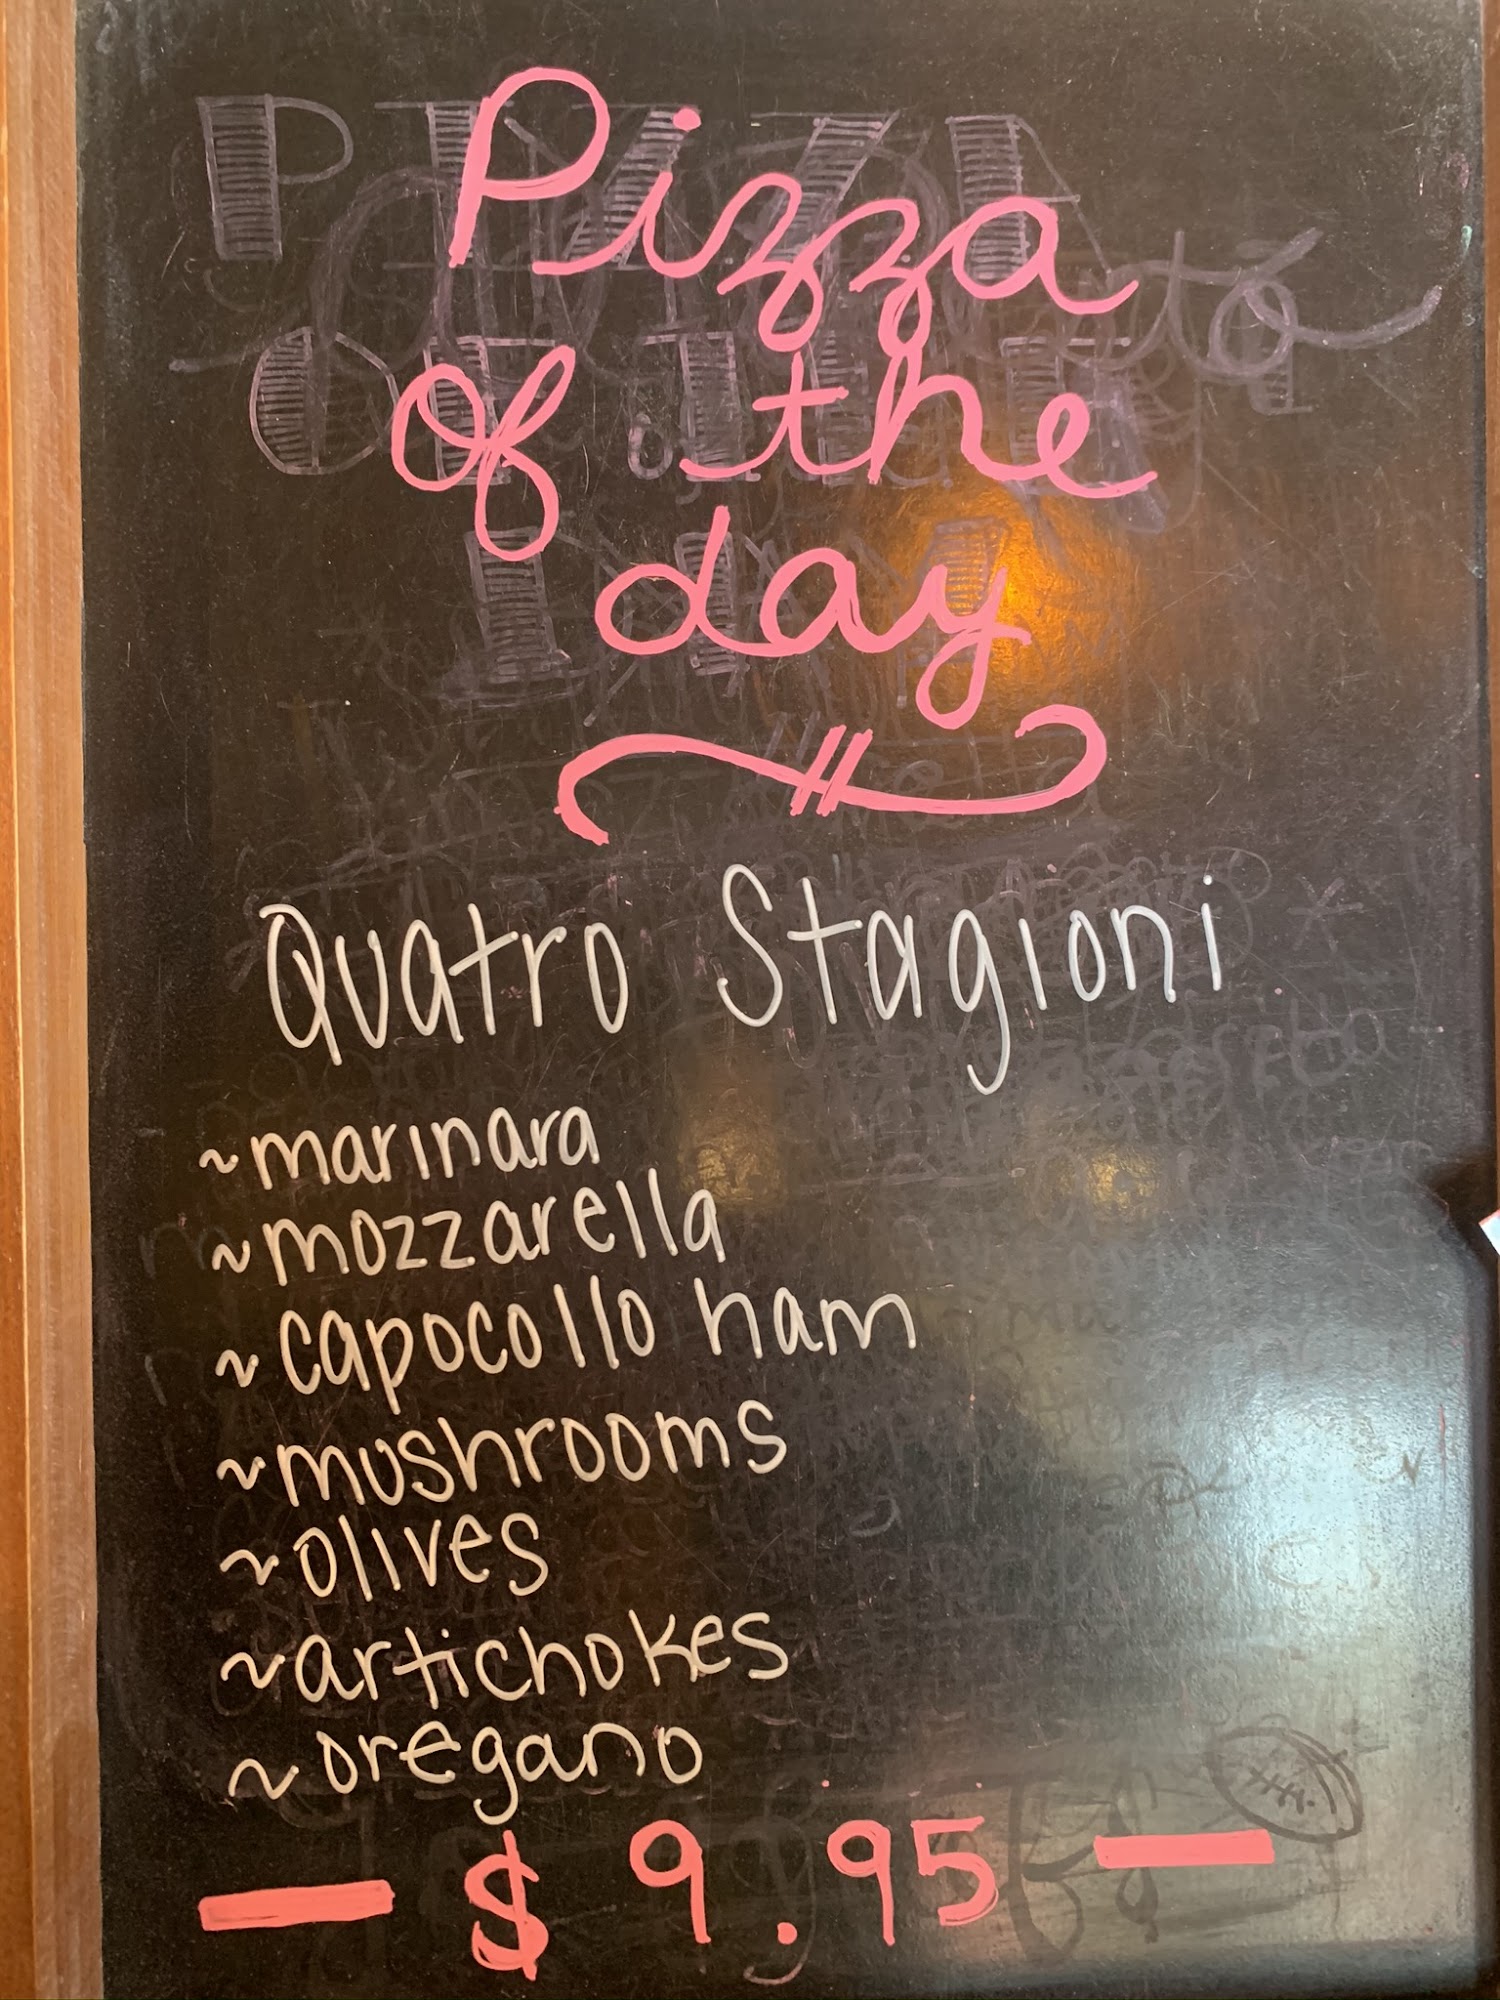 Pizza
of the
day
Quatro Stagioni
~marinara
~mozzarella
~capocollo ham
~mushrooms
~olives
~artichokes
~oregano
- $ 9.95 -